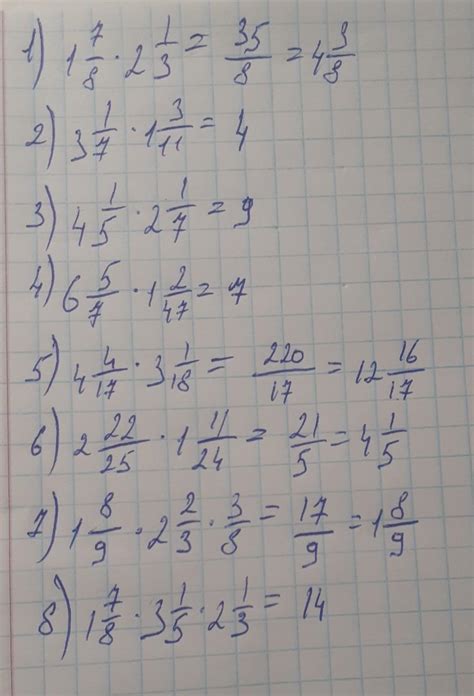 1) 1 7/8 · 2 1/3 = 35/8 = 4 3/8
2) 3 1/7 · 1 3/11 = 4
3) 4 1/5 · 2 1/7 = 9
4) 6 5/7 · 1 2/47 = 7
5) 4 4/17 · 3 1/18 = 220/17 = 12 16/17
6) 2 22/25 · 1 11/24 = 21/5 = 4 1/5
7) 1 8/9 · 2 2/3 · 3/8 = 17/9 = 1 8/9
8) 1 7/8 · 3 1/5 · 2 1/3 = 14